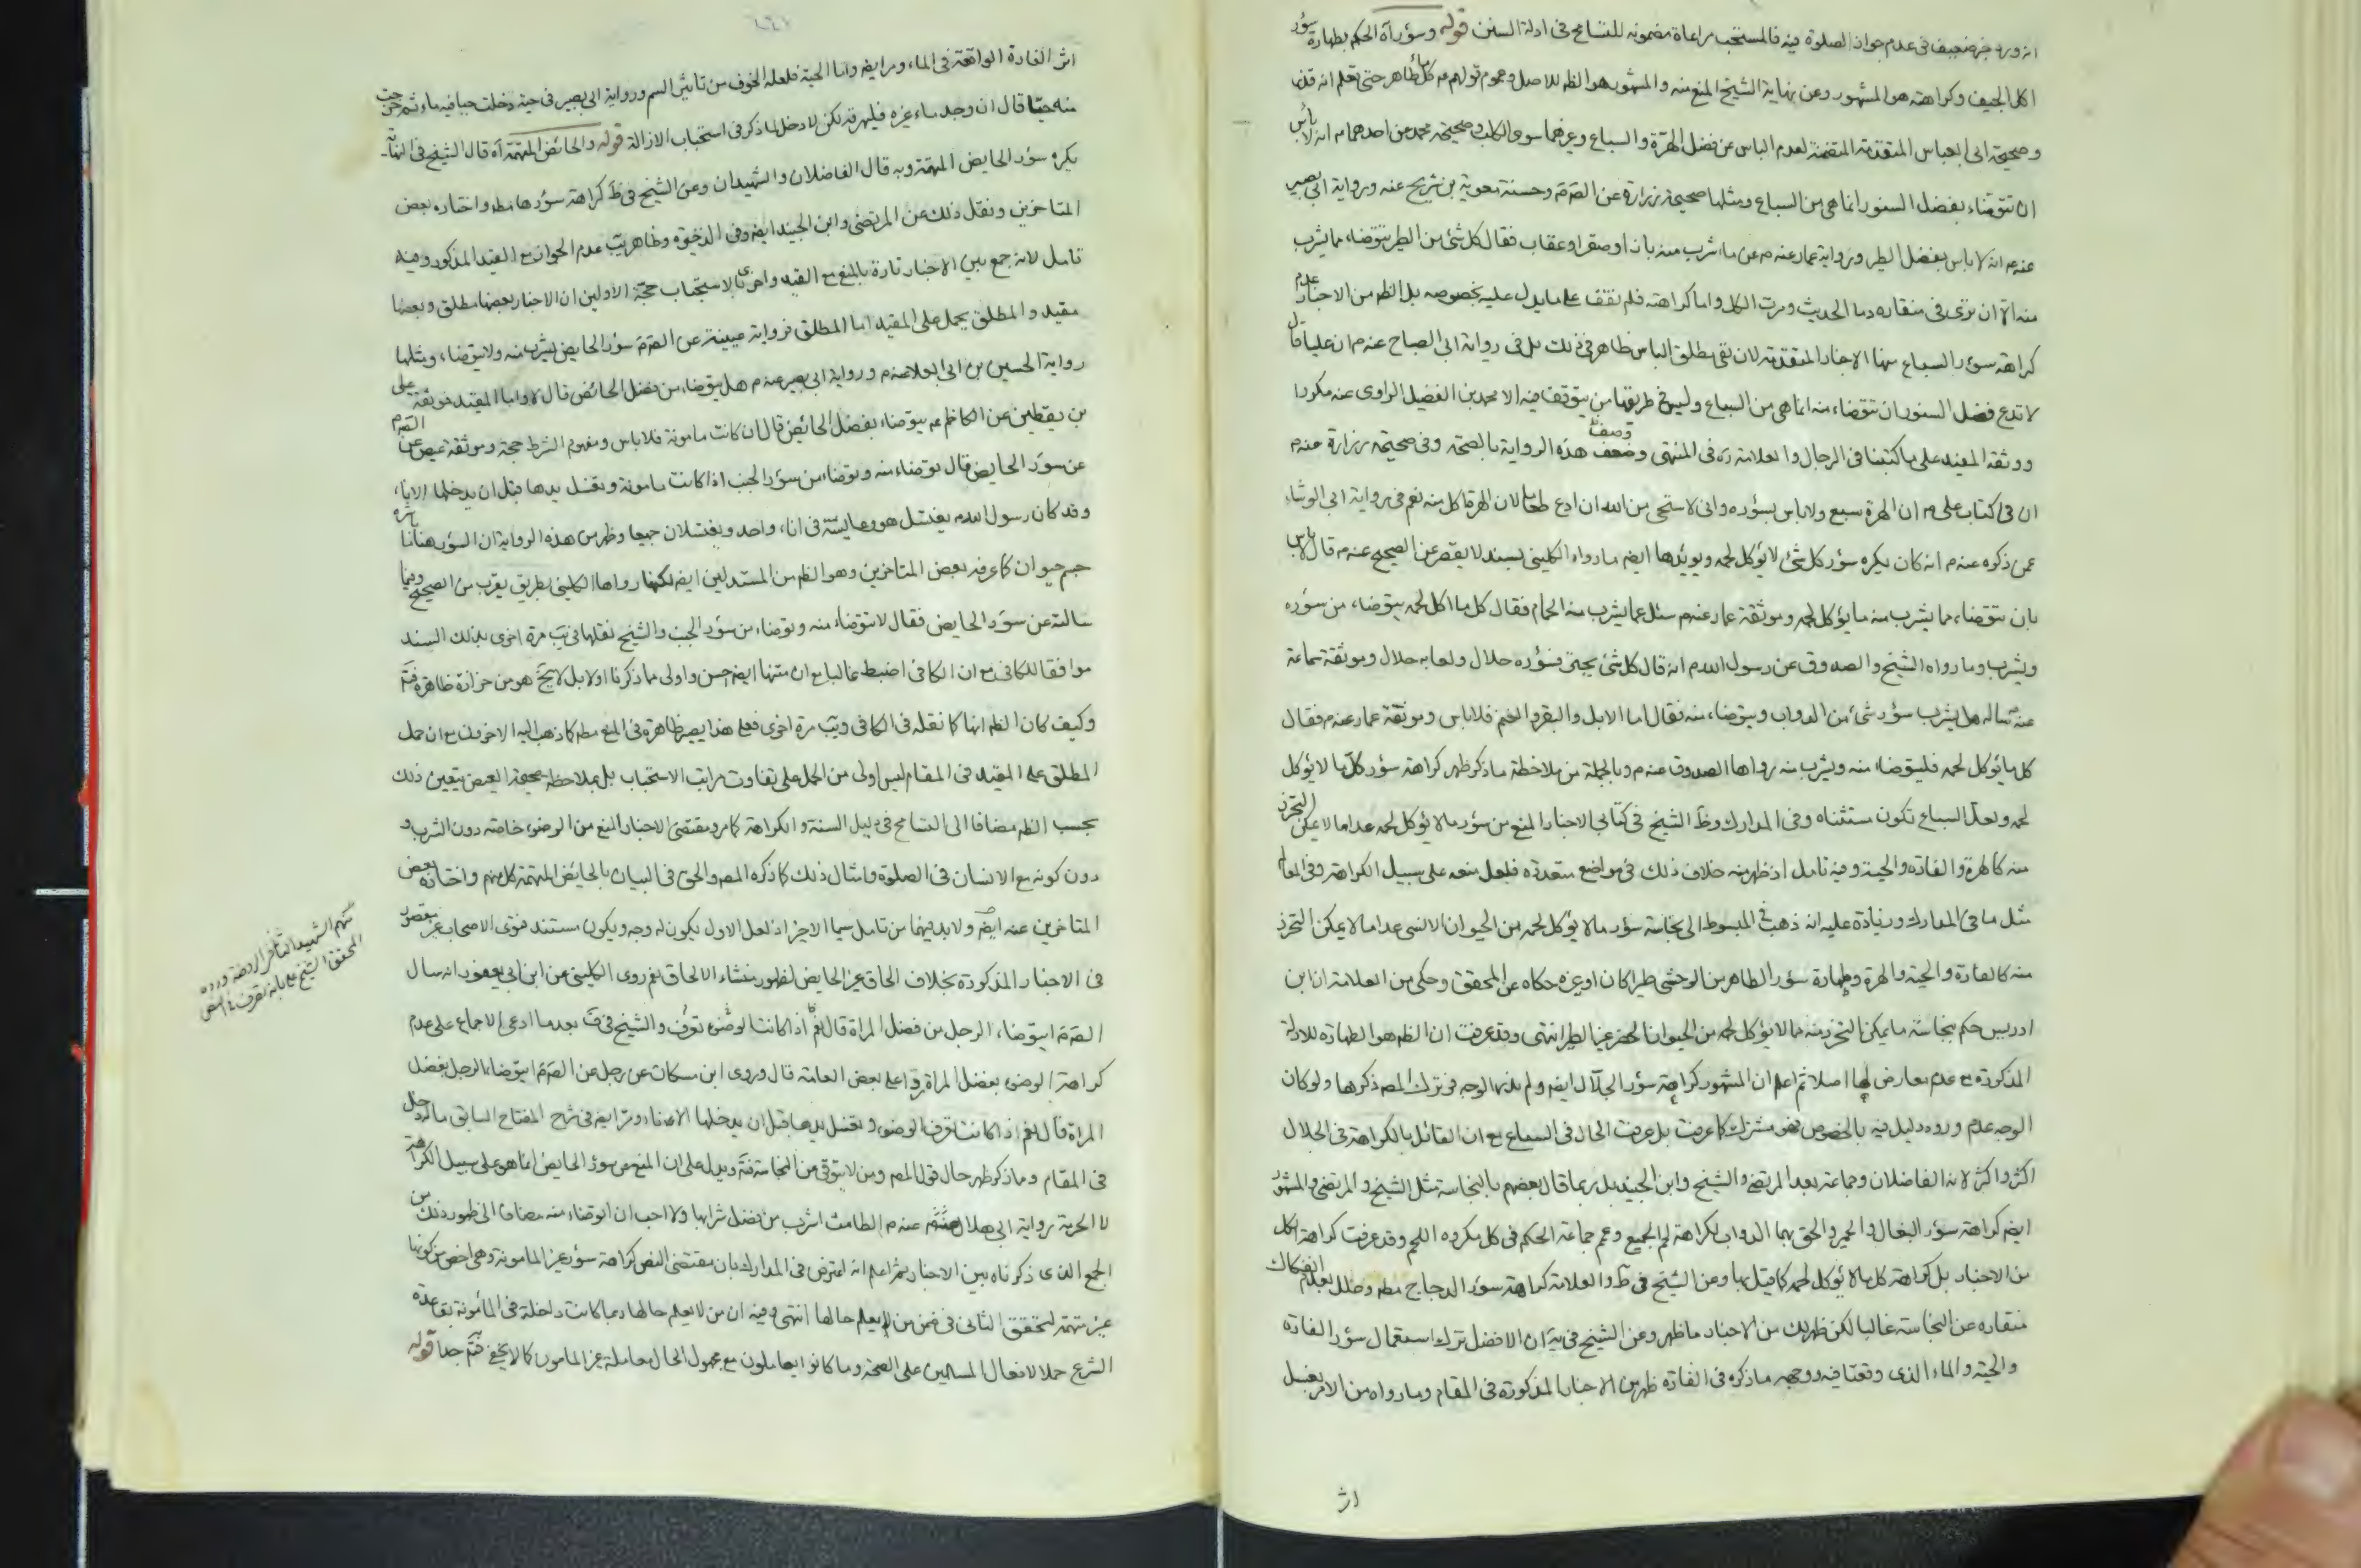 انه ورد خبر ضعيف فى عدم جواز الصلوة فيه فالمستحب مراعاة مضمونه للتسامح فى ادلة السنن قوله وسؤر آه الحكم بطهارة سؤر
اكل الجيف وكراهته هو المشهور وعن نهاية الشيخ المنع منه والمشهور هو الظم للاصل وعموم قولهم ع كل ماء طاهر حتى تعلم انه قذر
وصحيحة ابى العباس المتقدمة المتضمنة لعدم الباس عن فضل الهرة والسباع وغيرهما سوى الكلب وصحيحة محمد عن احدهما م انه لا بأس
ان تتوضاء بفضل السنور انما هى من السباع ومثلها صحيحة زرارة عن الصم وحسنة معوية بن شريح عنه ورواية ابى بصير
عنه م انه لا باس بفضل الطير ورواية عمار عنه م عن ما شرب منه باز او صقر او عقاب فقال كل شئ من الطير تتوضاء مما يشرب
منه الا ان ترى فى منقاره دما الحديث ومرت الكل واما كراهته فلم نقف على ما يدل عليه بخصوصه بل الظم من الاخبار عدم
كراهة سؤر السباع منها الاخبار المتقدمة لان نفى مطلق الباس ظاهر فى ذلك بل فى رواية ابى الصباح عنه م ان عليا قال
لا تدع فضل السنور ان تتوضاء منه انما هى من السباع وليس فى طريقها من يتوقف فيه الا محمد بن الفضيل الراوى عنه مكررا
ووثقه المفيد على ما كتبنا فى الرجال والعلامة ره فى المنتهى وصف هذه الرواية بالصحة وفى صحيحة زرارة عنه م
ان فى كتاب على م ان الهرة سبع ولا باس بسؤره وانى لاستحى من الله ان ادع طعاما لان الهرة اكل منه نعم فى رواية ابى الوشاء
عمن ذكره عنه م انه كان يكره سؤر كل شئ لا يؤكل لحمه ويؤيدها ايضم ما رواه الكلينى بسند لا يقصر عن الصحيح عنه م قال لا بأس
بان تتوضاء مما يشرب منه ما يؤكل لحمه وموثقة عمار عنه م سئل عما يشرب منه الحمام فقال كل ما اكل لحمه يتوضاء من سؤره
ويشرب وما رواه الشيخ والصدوق عن رسول الله م انه قال كل شئ يجتر فسؤره حلال ولعابه حلال وموثقة سماعة
عنه م ساله هل يشرب سؤر شئ من الدواب ويتوضاء منه فقال اما الابل والبقر والغنم فلا باس وموثقة عمار عنه م فقال
كل ما يؤكل لحمه فليتوضاء منه ويشرب منه رواها الصدوق عنه م وبالجملة من ملاحظة ما ذكر ظهر كراهة سؤر كل ما لا يؤكل
لحمه ولعل السباع تكون مستثناه وفى المدارك وظ الشيخ فى كتابى الاخبار المنع من سؤر ما لا يؤكل لحمه عدا ما لا يمكن التحرز
منه كالهرة والفارة والحية وفيه تامل اذ ظهر منه خلاف ذلك فى مواضع متعددة فلعل منعه على سبيل الكراهة وفى المعالم
مثل ما فى المدارك وزيادة عليه انه ذهب فى المبسوط الى نجاسة سؤر ما لا يؤكل لحمه من الحيوان الانسى عدا ما لا يمكن التحرز
منه كالفارة والحية والهرة وطهارة سؤر الطاهر من الوحشى طيرا كان او غيره حكاه عن المحقق وحكى من العلامة ان ابن
ادريس حكم بنجاسة ما يمكن التحرز منه مما لا يؤكل لحمه من الحيوان الحضر غير الطير انتهى وقد عرفت ان الظم هو الطهارة للادلة
المذكورة مع عدم معارض لها اصلا ثم اعلم ان المشهور كراهة سؤر الجلال ايضم ولم يذهبا الوجه فى ترك المصم ذكرها ولو كان
الوجه عدم ورود دليل فيه بالخصوص فهو مشترك كما عرفت بل عرفت الحال فى السباع مع ان القائل بالكراهة فى الجلال
اكثر واكثر لانه الفاضلان وجماعة بعد المرتضى والشيخ وابن الجنيد بل ربما قال بعضهم بالنجاسة مثل الشيخ والمرتضى والمشهور
ايضم كراهة سؤر البغال والحمير والحق بهما الدواب لكراهة لحم الجميع وعمم جماعة الحكم فى كل مكروه اللحم وقد عرفت كراهة الكل
من الاخبار بل كراهة كل ما لا يؤكل لحمه كما قيل بها وعن الشيخ فى ط والعلامة كراهة سؤر الدجاج مطم وعلل بعدم انفكاك
منقاره عن النجاسة غالبا لكن ظهر لك من الاخبار ما ظهر وعن الشيخ فى ية ان الافضل ترك استعمال سؤر الفارة
والحية والماء الذى وقعتا فيه ووجه ما ذكره فى الفارة ظهر من الاخبار المذكورة فى المقام وما رواه من الامر بغسل
اثر
اثر الفارة الواقعة فى الماء ومر ايضم واما الحية فلعله الخوف من تاثير السم ورواية ابى بصير فى حية دخلت حبا فيه ماء ثم خرجت
منه حيا قال ان وجد ماء غيره فليهرقه لكن لا دخل لما ذكر فى استحباب الازالة قوله والحائض المتهمة آه قال الشيخ فى النهاية
يكره سؤر الحايض المتهمة وبه قال الفاضلان والشهيدان وعن الشيخ فى ط كراهة سؤرها مطم واختاره بعض
المتاخرين ونقل ذلك عن المرتضى وابن الجنيد ايضم وفى الذخيرة وظاهر يب عدم الجواز مع القيد المذكور وفيه
تامل لانه جمع بين الاخبار تارة بالمنع مع القيد واخرى بالاستحباب حجة الاولين ان الاخبار بعضها مطلق وبعضها
مقيد والمطلق يحمل على المقيد اما المطلق فرواية عيينة عن الصم سؤر الحايض يشرب منه ولا يتوضاء ومثلها
رواية الحسين بن ابى العلاء عنه م ورواية ابى بصير عنه م هل يتوضاء من فضل الحائض قال لا واما المقيد فموثقة على
بن يقطين عن الكاظم عم يتوضاء بفضل الحائض قال ان كانت مامونة فلا باس ومفهوم الشرط حجة وموثقة عيص عن الصم
عن سؤر الحايض قال توضاء منه وتوضاء من سؤر الجنب اذا كانت مامونة وتغسل يدها قبل ان يدخلها الاناء
وقد كان رسول الله م يغتسل هو وعايشة فى اناء واحد ويغتسلان جميعا وظهر من هذه الرواية ان السؤر هنا ما باشره
جسم حيوان كما عرفه بعض المتاخرين وهو الظم من المستدلين ايضم لكنها رواها الكلينى بطريق يقرب من الصحيح وفيها
سالته عن سؤر الحايض فقال لا تتوضاء منه وتوضاء من سؤر الجنب والشيخ نقلها فى يب مرة اخرى بذلك السند
موافقا للكافى مع ان الكافى اضبط غالبا مع ان متنها ايضم احسن واولى مما ذكرنا اولا بل لا يخ هو من حزازة ظاهرة فتم
وكيف كان الظم انها كما نقله فى الكافى ويب مرة اخرى فعلى هذا يصير ظاهرة فى المنع مطم كما ذهب اليه الاخرون مع ان حمل
المطلق على المقيد فى المقام ليس اولى من الحمل على تفاوت مراتب الاستحباب بل بملاحظة صحيحة العيص يتعين ذلك
بحسب الظم مضافا الى التسامح فى دليل السنة والكراهة كما مر ومقتضى الاخبار المنع من الوضوء خاصة دون الشرب و
دون كونه مع الانسان فى الصلوة وامثال ذلك كما ذكره المصم والحق فى البيان بالحايض المتهمة كل متهم واختاره بعض
المتاخرين عنه ايضم ولا بد فيهما من تامل سيما الاخير اذ لعل الاول يكون له وجه ويكون مستند فتوى الاصحاب غير مقصور
فى الاخبار المذكورة بخلاف الحاق غير الحايض لظهور منشاء الالحاق نعم روى الكلينى عن ابن ابى يعفور انه سال
الصم ايتوضاء الرجل من فضل المراة قال نعم اذا كانت تعرف الوضوء والشيخ فى ف بعد ما ادعى الاجماع على عدم
كراهة الوضوء بفضل المراة ردا على بعض العامة قال وروى ابن مسكان عن رجل عن الصم ايتوضاء الرجل بفضل
المراة قال نعم اذا كانت تعرف الوضوء وتغسل يدها قبل ان يدخلها الاناء ومر ايضم فى شرح المفتاح السابق ماله دخل
فى المقام ومما ذكر ظهر حال قول المصم ومن لا يتوقى من النجاسة فتم ويدل على ان المنع من سؤر الحايض انما هو على سبيل الكراهة
لا الحرمة رواية ابى هلال عنه م الطامث اشرب من فضل شرابها ولا احب ان اتوضاء منه مضافا الى ظهور ذلك من
الجمع الذى ذكرناه بين الاخبار ثم اعلم انه اعترض فى المدارك بان مقتضى النص كراهة سؤر غير المامونة وهى اخص من كونها
غير متهمة لتحقق الثانى فى ضمن من لا يعلم حالها انتهى وفيه ان من لا يعلم حالها ربما كانت داخلة فى المأمونة بقاعدة
الشرع حملا لافعال المسلمين على الصحة وما كانوا يعاملون مع مجهول الحال معاملة غير المامون كما لا يخفى فتم جدا قوله
منهم الشهيد الثانى فى الروضة ورده
المحقق الشيخ على بانه تصرف فى النص